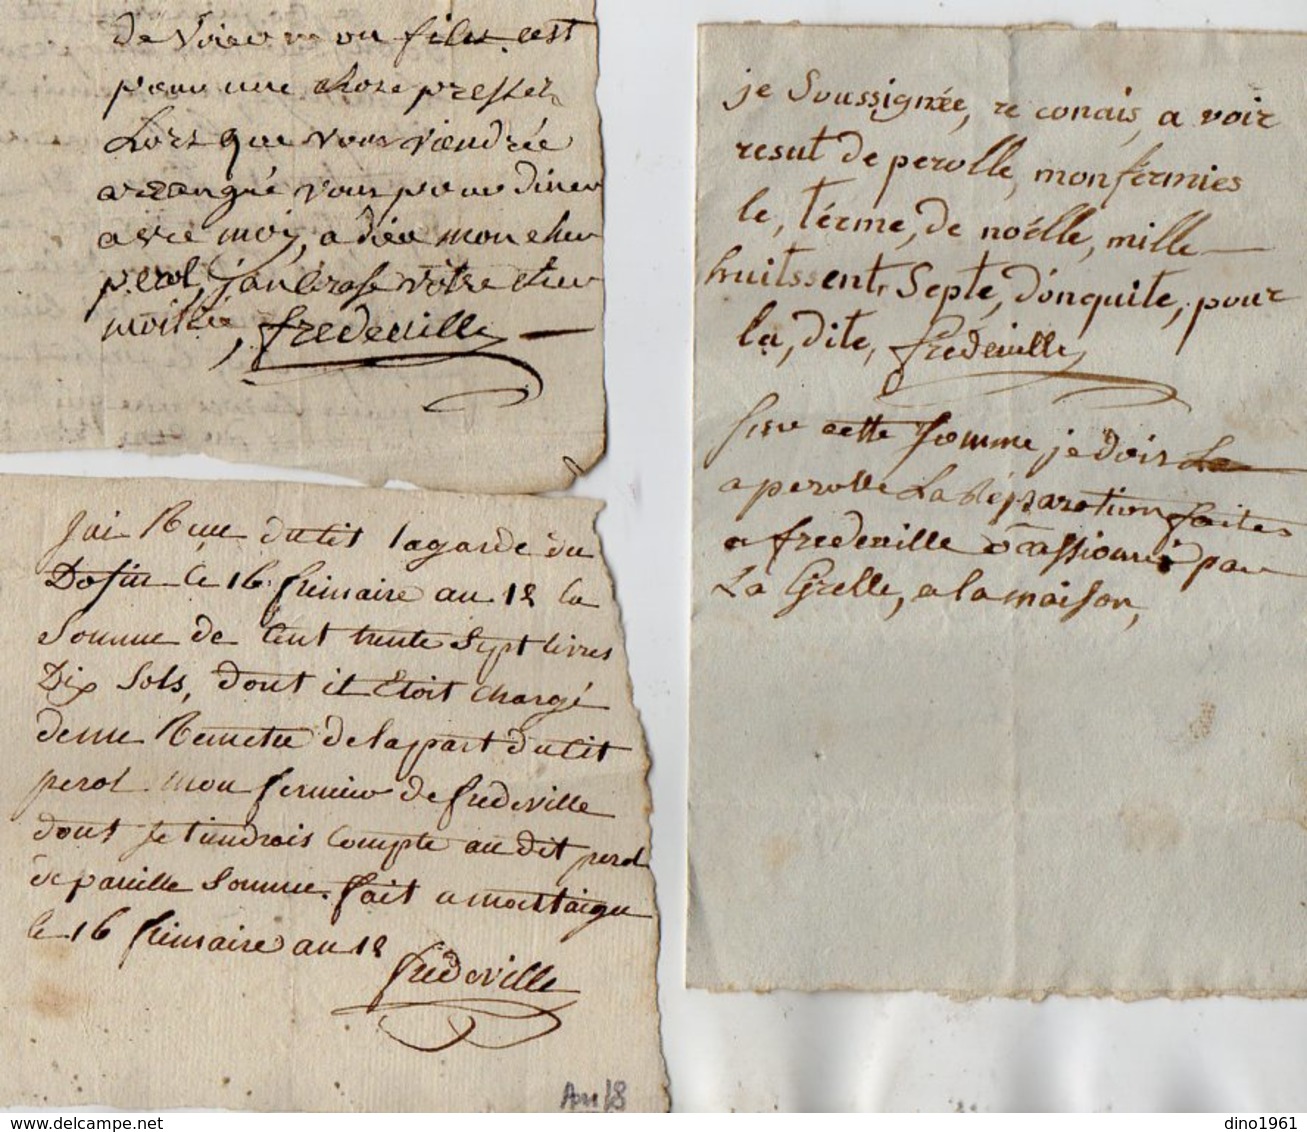 de voir mon fils c'est
pour une chose presser
Lors que vous viendrée
arrangé vous pour diner
avec moy, a dieu mon cher
perol, j'anbrase votre cher
moitié, fredeville
J'ai Reçu dudit lagarde du
le 16 frimaire an 12 la
Somme de Cent trente Sept livres
Dix Sols, dont il Etoit chargé
de me Remettre de la part dudit
perol mon fermier de fredeville
dont Je tiendrais Compte au dit perol
de pareille Somme. fait a mostaigu
le 16 frimaire an 12
fredeville
An 18
je Soussignée, re conais, a voir
resut de perolle, mon fermies
le, térme, de noélle, mille
huitssent, Septe, donquite, pour
la, dite, fredeville
sur cette somme je dois
a perolle La Réparation faites
a fredeville ocassionné par
La Grelle, a la maison,
dino1961